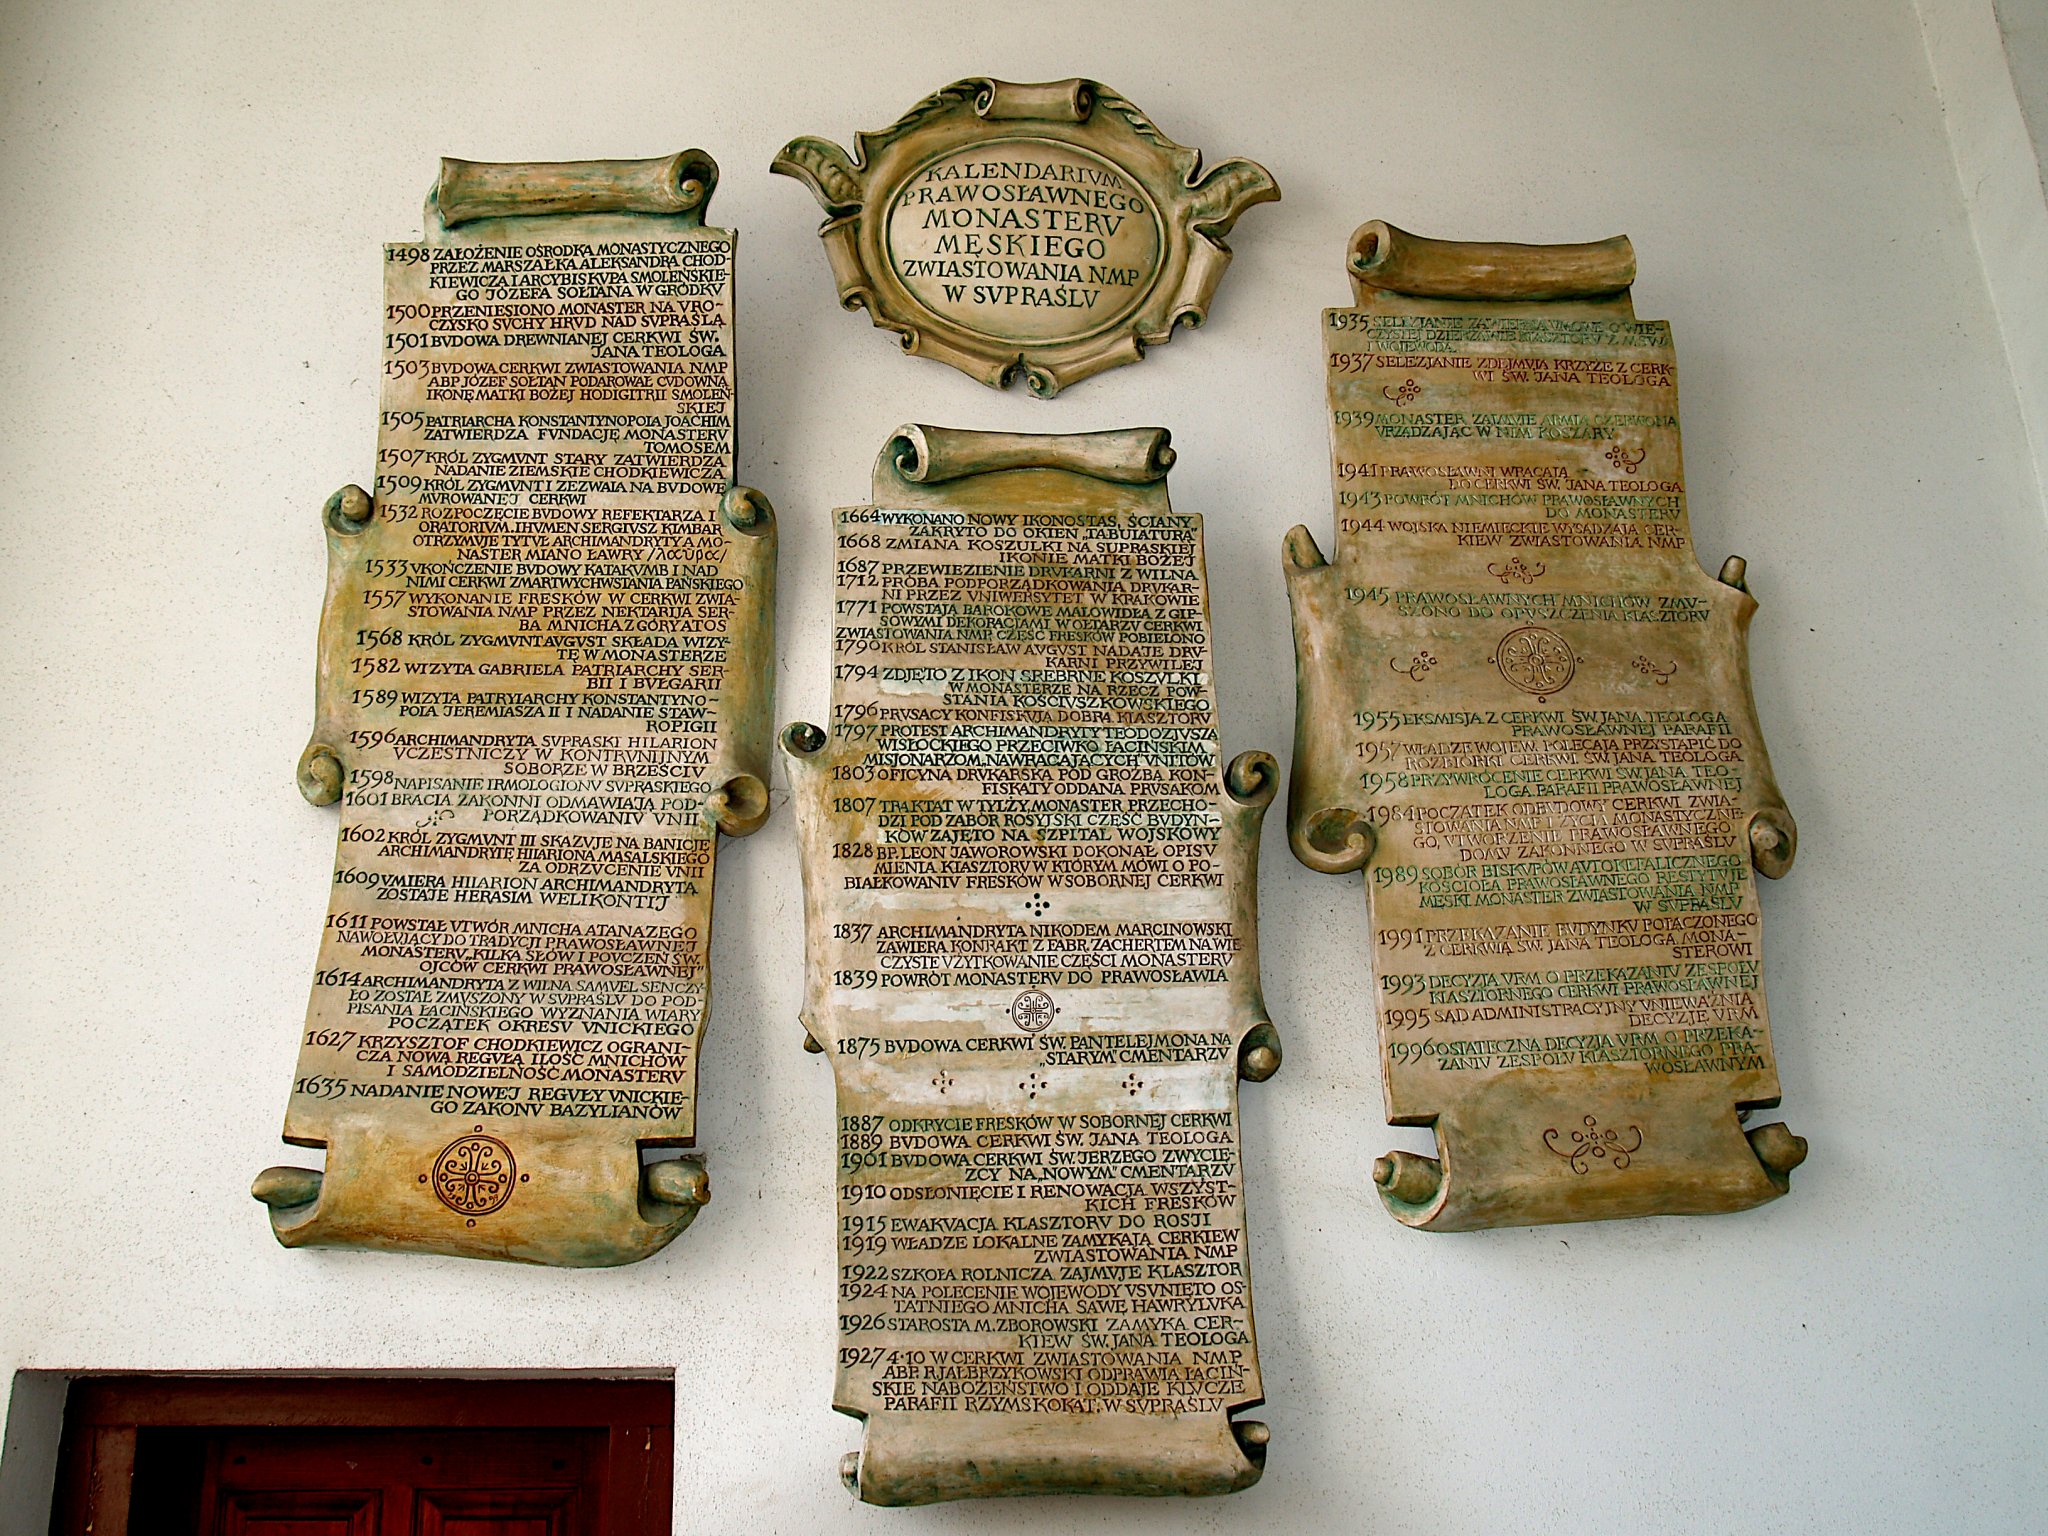 KALENDARIVM
PRAWOSŁAWNEGO
MONASTERV
MĘSKIEGO
ZWIASTOWANIA NMP
W SVPRAŚLV
1498 ZAŁOŻENIE OŚRODKA MONASTYCZNEGO
PRZEZ MARSZAŁKA ALEKSANDRA CHOD-
KIEWICZA I ARCYBISKVPA SMOLEŃSKIE-
GO JÓZEFA SOŁTANA W GRÓDKV
1500 PRZENIESIONO MONASTER NA VRO-
CZYSKO SVCHY HRVD NAD SVPRAŚLĄ
1501 BVDOWA DREWNIANEJ CERKWI ŚW.
JANA TEOLOGA
1503 BVDOWA CERKWI ZWIASTOWANIA NMP
ABP JÓZEF SOŁTAN PODAROWAŁ CVDOWNĄ
IKONĘ MATKI BOŻEJ HODIGITRII SMOLEŃ-
SKIEJ
1505 PATRIARCHA KONSTANTYNOPOLA JOACHIM
ZATWIERDZA FVNDACJĘ MONASTERV
TOMOSEM
1507 KRÓL ZYGMVNT STARY ZATWIERDZA
NADANIE ZIEMSKIE CHODKIEWICZA
1509 KRÓL ZYGMVNT I ZEZWALA NA BVDOWĘ
MVROWANEJ CERKWI
1532 ROZPOCZĘCIE BVDOWY REFEKTARZA I
ORATORIVM. IHVMEN SERGIVSZ KIMBAR
OTRZYMVJE TYTVŁ ARCHIMANDRYTY A MO-
NASTER MIANO ŁAWRY /λαῦρα/
1533 VKOŃCZENIE BVDOWY KATAKVMB I NAD
NIMI CERKWI ZMARTWYCHWSTANIA PAŃSKIEGO
1557 WYKONANIE FRESKÓW W CERKWI ZWIA-
STOWANIA NMP PRZEZ NEKTARIJA SER-
BA MNICHA Z GÓRY ATOS
1568 KRÓL ZYGMVNT AVGVST SKŁADA WIZY-
TĘ W MONASTERZE
1582 WIZYTA GABRIELA PATRIARCHY SER-
BII I BVŁGARII
1589 WIZYTA PATRYIARCHY KONSTANTYNO-
POLA JEREMIASZA II I NADANIE STAW-
ROPIGII
1596 ARCHIMANDRYTA SVPRASKI HILARION
VCZESTNICZY W KONTRVNIJNYM
SOBORZE W BRZEŚCIV
1598 NAPISANIE IRMOLOGIONV SVPRASKIEGO
1601 BRACIA ZAKONNI ODMAWIAJĄ POD-
PORZĄDKOWANIV VNII
1602 KRÓL ZYGMVNT III SKAZVJE NA BANICJĘ
ARCHIMANDRYTĘ HILARIONA MASALSKIEGO
ZA ODRZVCENIE VNII
1609 VMIERA HILARION ARCHIMANDRYTĄ
ZOSTAJE HERASIM WELIKONTIJ
1611 POWSTAŁ VTWÓR MNICHA ATANAZEGO
NAWOŁVJĄCY DO TRADYCJI PRAWOSŁAWNEJ
MONASTERV „KILKA SŁÓW I POVCZEŃ ŚW.
OJCÓW CERKWI PRAWOSŁAWNEJ"
1614 ARCHIMANDRYTA Z WILNA SAMVEL SENCZY-
ŁO ZOSTAŁ ZMVSZONY W SVPRAŚLV DO POD-
PISANIA ŁACIŃSKIEGO WYZNANIA WIARY
POCZĄTEK OKRESV VNICKIEGO
1627 KRZYSZTOF CHODKIEWICZ OGRANI-
CZA NOWĄ REGVŁĄ ILOŚĆ MNICHÓW
I SAMODZIELNOŚĆ MONASTERV
1635 NADANIE NOWEJ REGVŁY VNICKIE-
GO ZAKONV BAZYLIANÓW
1664 WYKONANO NOWY IKONOSTAS, ŚCIANY
ZAKRYTO DO OKIEN „TABULATURĄ"
1668 ZMIANA KOSZULKI NA SUPRASKIEJ
IKONIE MATKI BOŻEJ
1687 PRZEWIEZIENIE DRVKARNI Z WILNA
1712 PRÓBA PODPORZĄDKOWANIA DRVKAR-
NI PRZEZ VNIWERSYTET W KRAKOWIE
1771 POWSTAJĄ BAROKOWE MALOWIDŁA Z GIP-
SOWYMI DEKORACJAMI W OŁTARZV CERKWI
ZWIASTOWANIA NMP. CZĘŚĆ FRESKÓW POBIELONO
1790 KRÓL STANISŁAW AVGVST NADAJE DRV-
KARNI PRZYWILEJ
1794 ZDJĘTO Z IKON SREBRNE KOSZVLKI
W MONASTERZE NA RZECZ POW-
STANIA KOŚCIVSZKOWSKIEGO
1796 PRVSACY KONFISKVJĄ DOBRA KLASZTORV
1797 PROTEST ARCHIMANDRYTY TEODOZJVSZA
WISŁOCKIEGO PRZECIWKO ŁACIŃSKIM
MISJONARZOM „NAWRACAJĄCYCH" VNITÓW
1803 OFICYNA DRVKARSKA POD GROŹBĄ KON-
FISKATY ODDANA PRVSAKOM
1807 TRAKTAT W TYLŻY. MONASTER PRZECHO-
DZI POD ZABÓR ROSYJSKI CZĘŚĆ BVDYN-
KÓW ZAJĘTO NA SZPITAL WOJSKOWY
1828 BP. LEON JAWOROWSKI DOKONAŁ OPISV
MIENIA KLASZTORV W KTÓRYM MÓWI O PO-
BIAŁKOWANIV FRESKÓW W SOBORNEJ CERKWI
1837 ARCHIMANDRYTA NIKODEM MARCINOWSKI
ZAWIERA KONRAKT Z FABR. ZACHERTEM NA WIE
CZYSTE VŻYTKOWANIE CZĘŚCI MONASTERV
1839 POWRÓT MONASTERV DO PRAWOSŁAWIA
1875 BVDOWA CERKWI ŚW. PANTELEJMONA NA
„STARYM" CMENTARZV
1887 ODKRYCIE FRESKÓW W SOBORNEJ CERKWI
1889 BVDOWA CERKWI ŚW. JANA TEOLOGA
1901 BVDOWA CERKWI ŚW. JERZEGO ZWYCIĘ-
ZCY NA „NOWYM" CMENTARZV
1910 ODSŁONIĘCIE I RENOWACJA WSZYST-
KICH FRESKÓW
1915 EWAKVACJA KLASZTORV DO ROSJI
1919 WŁADZE LOKALNE ZAMYKAJĄ CERKIEW
ZWIASTOWANIA NMP
1922 SZKOŁA ROLNICZA ZAJMVJE KLASZTOR
1924 NA POLECENIE WOJEWODY VSVNIĘTO OS-
TATNIEGO MNICHA SAWĘ HAWRYLVKA
1926 STAROSTA M. ZBOROWSKI ZAMYKA CER-
KIEW ŚW. JANA TEOLOGA
1927 4·10 W CERKWI ZWIASTOWANIA NMP
ABP. R. JAŁBRZYKOWSKI ODPRAWIA ŁACIŃ-
SKIE NABOŻEŃSTWO I ODDAJE KLVCZE
PARAFII RZYMSKOKAT. W SVPRAŚLV
1935 SELEZJANIE ZAWIERAJĄ VMOWĘ O WIE-
CZYSTEJ DZIERŻAWIE KLASZTORV Z MSW
I WOJEWODĄ
1937 SELEZJANIE ZDEJMVJĄ KRZYŻE Z CERK-
WI ŚW. JANA TEOLOGA
1939 MONASTER ZAJMVJE ARMIA CZERWONA
VRZĄDZAJĄC W NIM KOSZARY
1941 PRAWOSŁAWNI WRACAJĄ
DO CERKWI ŚW. JANA TEOLOGA
1943 POWRÓT MNICHÓW PRAWOSŁAWNYCH
DO MONASTERV
1944 WOJSKA NIEMIECKIE WYSADZAJĄ CER-
KIEW ZWIASTOWANIA NMP
1945 PRAWOSŁAWNYCH MNICHÓW ZMV-
SZONO DO OPVSZCZENIA KLASZTORV
1955 EKSMISJA Z CERKWI ŚW. JANA TEOLOGA
PRAWOSŁAWNEJ PARAFII
1957 WŁADZE WOJEW. POLECAJĄ PRZYSTĄPIĆ DO
ROZBIÓRKI CERKWI ŚW. JANA TEOLOGA
1958 PRZYWRÓCENIE CERKWI ŚW. JANA TEO-
LOGA PARAFII PRAWOSŁAWNEJ
1984 POCZĄTEK ODBVDOWY CERKWI ZWIA-
STOWANIA NMP I ŻYCIA MONASTYCZNE-
GO, VTWORZENIE PRAWOSŁAWNEGO
DOMV ZAKONNEGO W SVPRAŚLV
1989 SOBÓR BISKVPÓW AVTOKEFALICZNEGO
KOŚCIOŁA PRAWOSŁAWNEGO RESTYTVJE
MĘSKI MONASTER ZWIASTOWANIA NMP
W SVPRAŚLV
1991 PRZEKAZANIE BVDYNKV POŁĄCZONEGO
Z CERKWIĄ ŚW. JANA TEOLOGA MONA-
STEROWI
1993 DECYZJA VRM O PRZEKAZANIV ZESPOŁV
KLASZTORNEGO CERKWI PRAWOSŁAWNEJ
1995 SĄD ADMINISTRACYJNY VNIEWAŻNIA
DECYZJĘ VRM
1996 OSTATECZNA DECYZJA VRM O PRZEKA-
ZANIV ZESPOŁV KLASZTORNEGO PRA-
WOSŁAWNYM